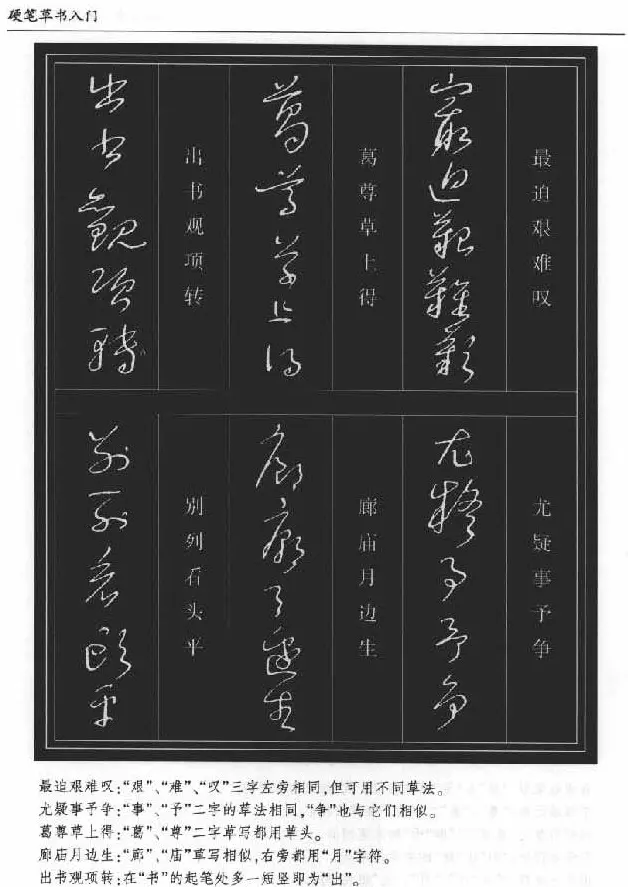 硬笔草书入门
最迫艰难叹
最迫艰难叹
尤疑事予争
尤疑事予争
葛尊草上得
葛尊草上得
廊庙月边生
廊庙月边生
出书观项转
出书观项转
别列看头平
别列看头平
最迫艰难叹:“艰”、“难”、“叹”三字左旁相同,但可用不同草法。
尤疑事予争:“事”、“予”二字的草法相同,“争”也与它们相似。
葛尊草上得:“葛”、“尊”二字草写都用草头。
廊庙月边生:“廊”、“庙”草写相似,右旁都用“月”字符。
出书观项转:在“书”的起笔处多一短竖即为“出”。